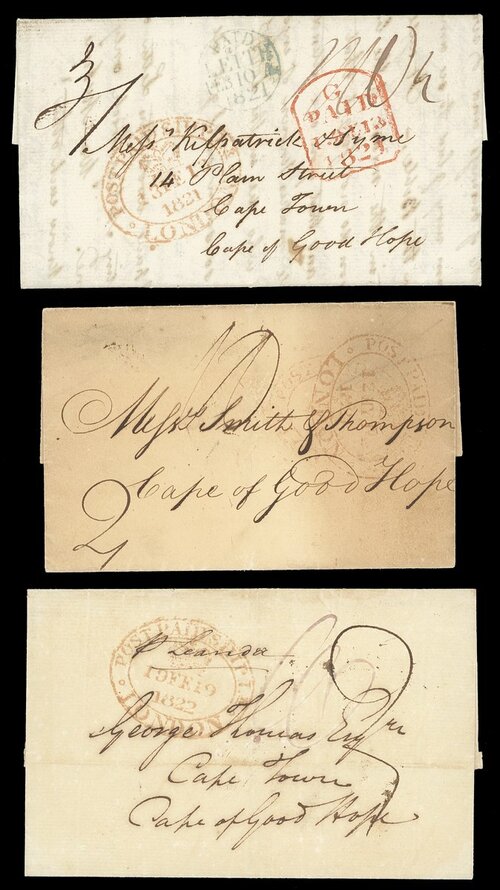 3/
PAID
1821
G
PAID
1821
POST PAID
1821
LONDON
Messrs Kilpatrick & Syme
14 Plain Street
Cape Town
Cape of Good Hope
POST PAID
LONDON
Messrs Smith & Thompson
Cape of Good Hope
2/
POST PAID SHIP LE
19 FE 19
1822
LONDON
p Leander
George Thomas Esqre
Cape Town
Cape of Good Hope